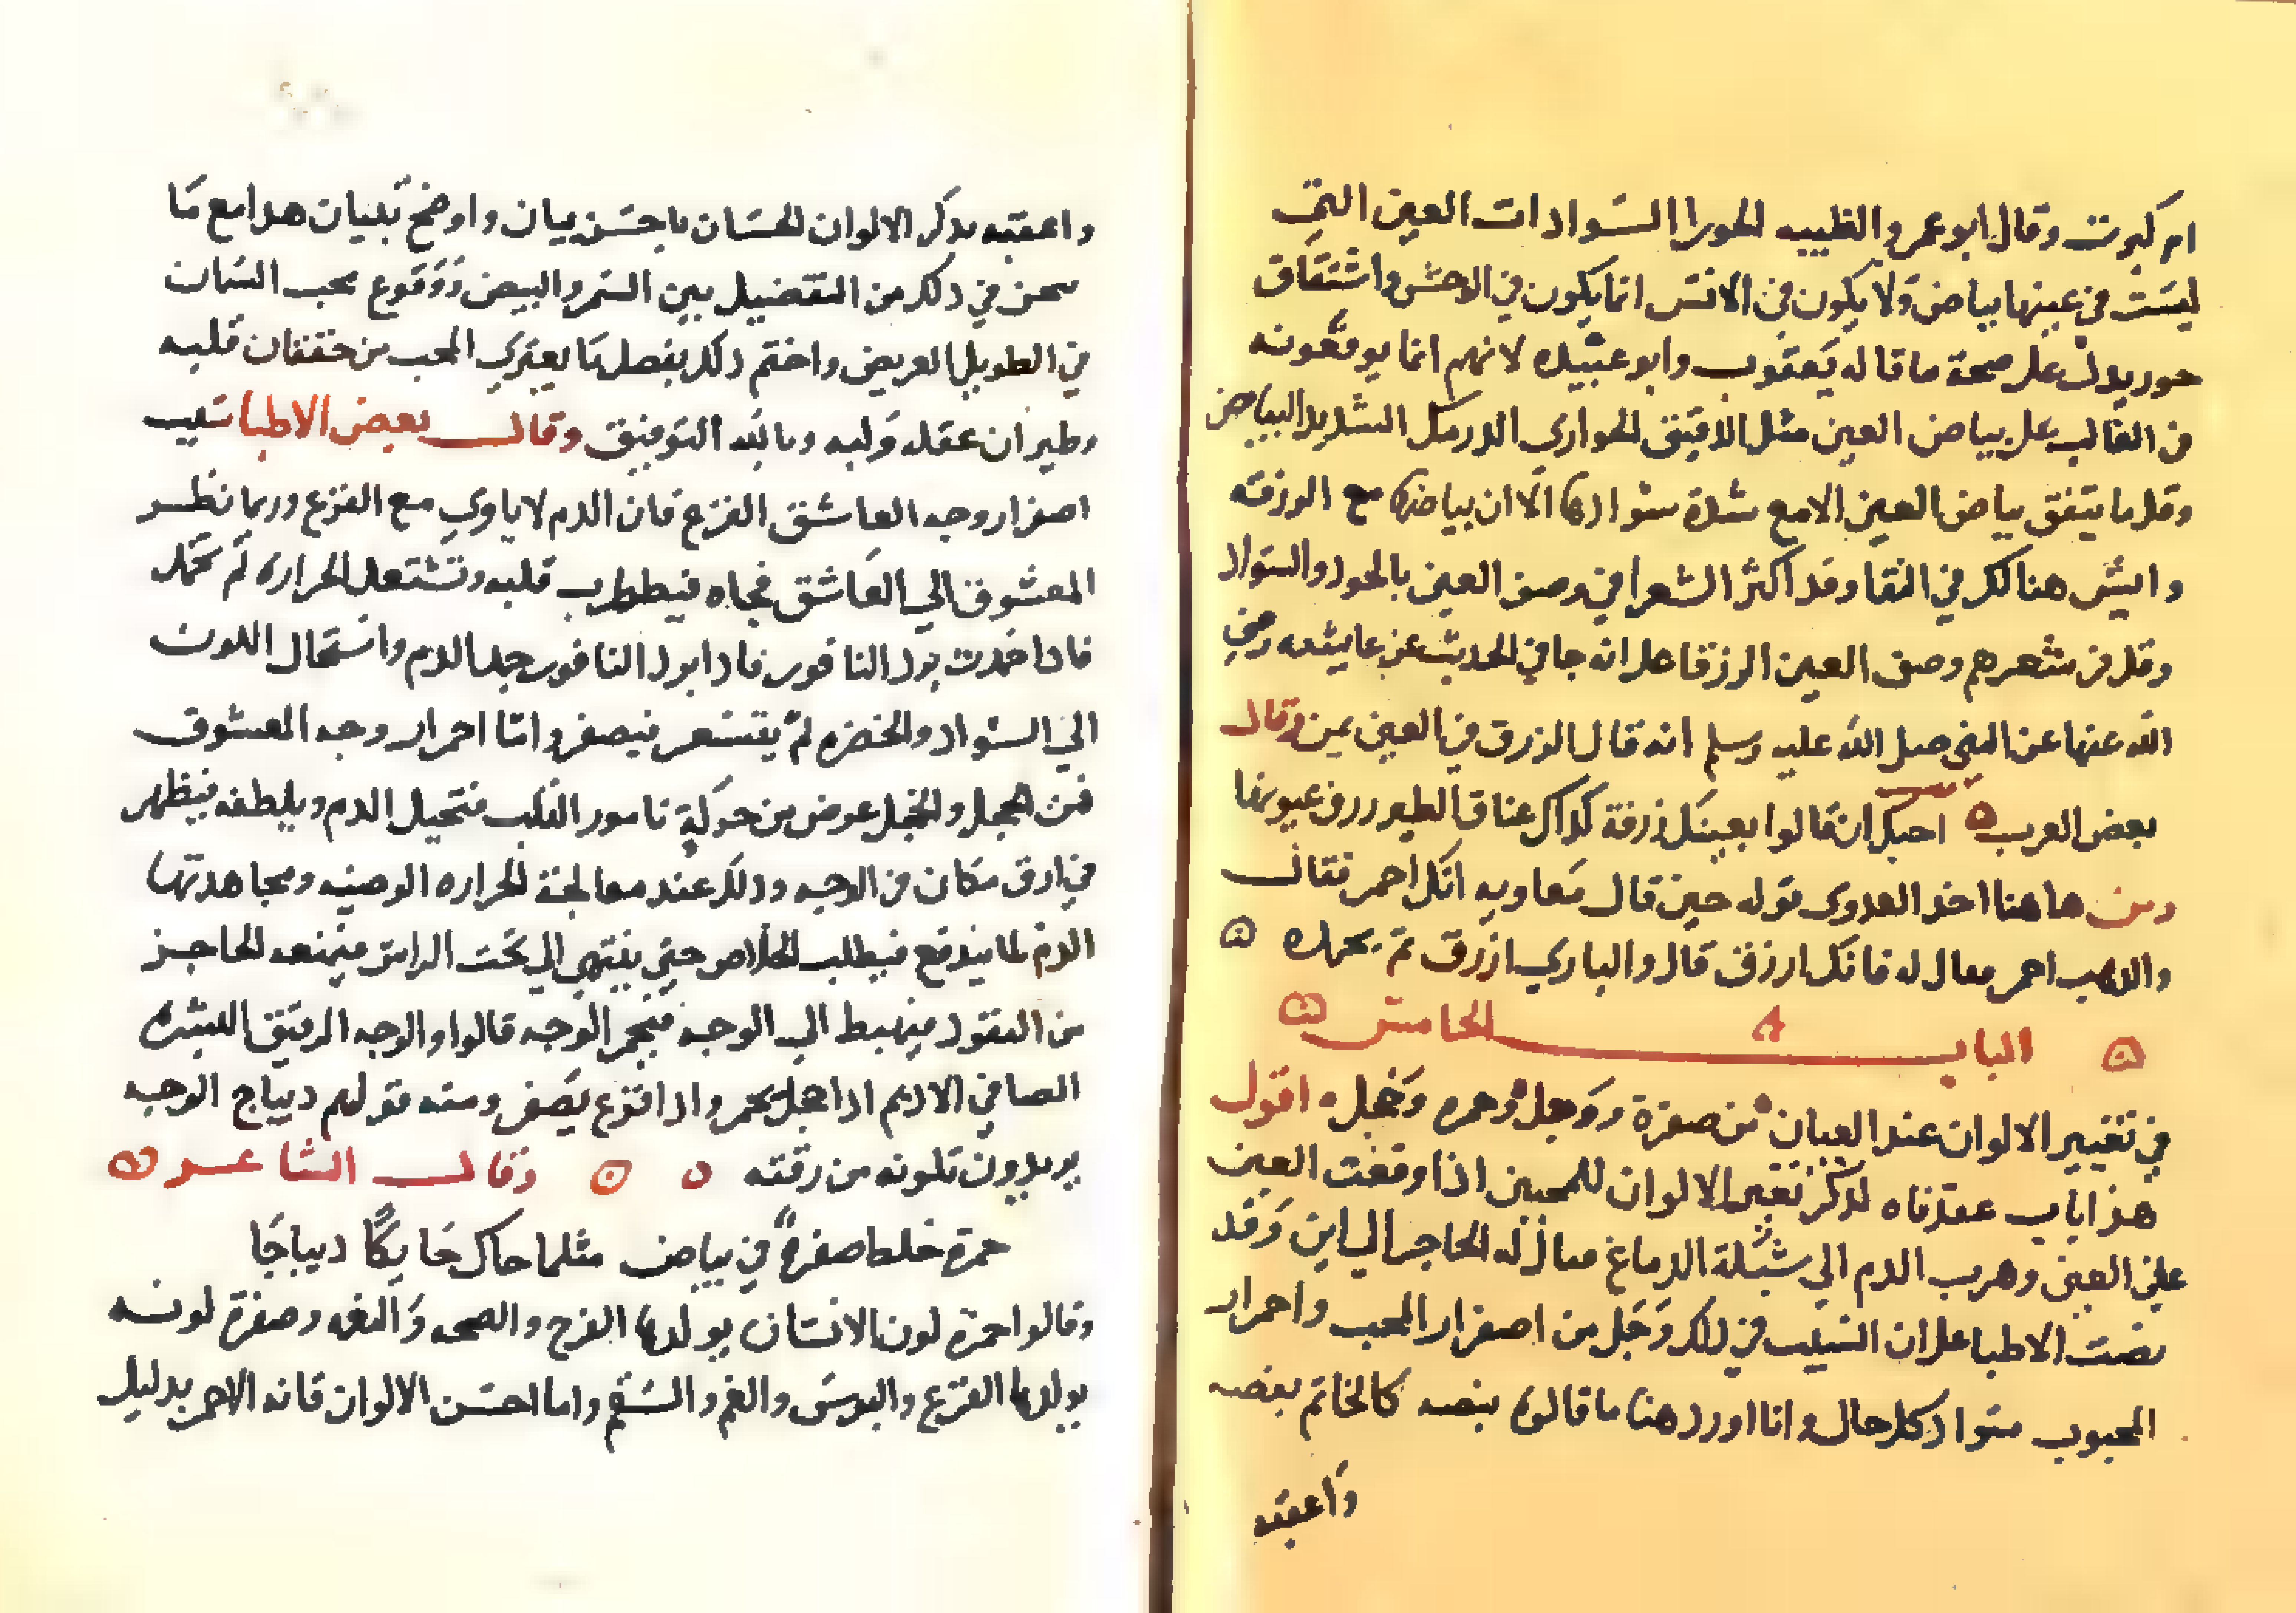 ام كبرت وقال ابو عمرو الظبيه الحورا السوادات العين التي
ليست في عينها بياض ولا يكون في الانس انما يكون في الوحش واشتقاق
حور يدل على صحة ما قاله يعقوب وابو عبيده لانهم انما يوقعونه
في الغالب على بياض العين مثل الدقيق الحواري الدرمك الشديد البياض
وقل ما يتفق بياض العين الا مع شدة سوادها الا ان بياضها مع الزرقه
وليس هنالك في النقا وقد اكثر الشعرا في وصف العين بالحور والسواد
وقل في شعرهم وصف العين الزرقا على انه جا في الحديث عن عايشه رضي
الله عنها عن النبي صلى الله عليه وسلم انه قال الزرق في العين يمن وقال
بعض العرب احبك ان قالوا بعينك زرقة كذاك عتاق الطير زرق عيونها
ومن هاهنا اخذ العدوي قوله حين قال معاويه انك احمر فقال
والذهب احمر فقال له فانك ازرق قال والبازي ازرق تم بحمده
الباب الخامس
في تغيير الالوان عند العيان من صفرة ووجل وحمره وخجل اقول
هذا باب عقدناه لذكر تغير الالوان للمحبين اذا وقعت العين
على العين وهرب الدم الى شبكة الدماغ فما زله الحاجر الى اين وقد
نصت الاطبا على ان السبب في ذلك وجل من اصفرار المحب واحمرار
المحبوب سوا دكل حال وانا اورد هنا ما قالوه بنصه كالخاتم بفصه
واعقبه
واعقبه بذكر الالوان الحسان باحسن بيان واوضح تبيان هذا مع ما
سحن في ذلك من التفضيل بين السمر والبيض ووقوع محب السمان
في الطويل العريض واختم ذلك بفصل ما يعتري المحب من خفقان قلبه
وطيران عقله ولبه وبالله التوفيق وقال بعض الاطبا سبب
اصفرار وجه العاشق الفزع فان الدم لا ياوي مع الفزع وربما نظر
المعشوق الي العاشق فجاه فيضطرب قلبه وتشتعل الحراره ثم تخمد
فاذا خمدت برد النافور فاذا برد النافور جمد الدم واستحال اللون
الي السواد والخضره ثم يقشعر فيصفر واما احمرار وجه المعشوق
فمن الخجل والخجل عوض من حركة نامور القلب فتحيل الدم ويلطفه فيظهر
في ارق مكان في الوجه وذلك عند معالجة الحراره الوصيفه ومجاهدتها
الدم لما يندفع فيطلب الخلاص حتى ينتهي الي تحت الراس فيمنعه الحاجز
من النفود فيهبط الي الوجه فيحمر الوجه قالوا والوجه الرقيق البشره
الصافي الاديم اذا خجل يحمر واذا فزع يصفر ومنه قولهم ديباج الوجه
يريدون تلونه من رقته وقال الشاعر
حمرة خلط صفرة في بياض مثلما حاك حايكا ديباجا
وقالوا حمرة لون الانسان يولدها الفرح والصحه والنعمه وصفرة لونه
يولدها الفزع والبوس والغم والسقم واما احسن الالوان فانه الاحمر بدليل